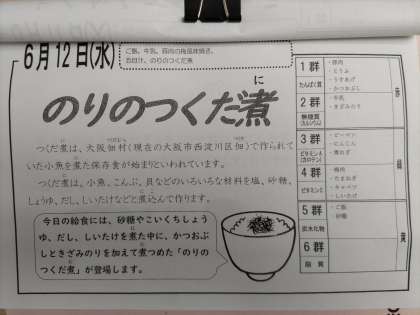 6月12日(水)
ご飯、牛乳、豚肉の梅風味焼き、
五目汁、のりのつくだ煮
のりのつくだ煮
に
つくだ煮は、大阪佃村(現在の大阪市西淀川区佃)で作られて
いた小魚を煮た保存食が始まりといわれています。
つくだ煮は、小魚、こんぶ、貝などのいろいろな材料を塩、砂糖、
しょうゆ、だし、しいたけなどと煮込んで作ります。
今日の給食には、砂糖やこいくちしょう
ゆ、だし、しいたけを煮た中に、かつおぶ
しときざみのりを加えて煮つめた「のりの
つくだ煮」が登場します。
1群
たんぱく質
・豚肉
・とうふ
・うすあげ
・かつおぶし
2群
無機質
(カルシウム)
・牛乳
・きざみのり
3群
ビタミンA
(カロテン)
・ピーマン
・にんじん
・青ねぎ
4群
ビタミンC
・梅肉
・たまねぎ
・キャベツ
・しいたけ
5群
炭水化物
・ご飯
・砂糖
6群
脂質
赤
緑
黄